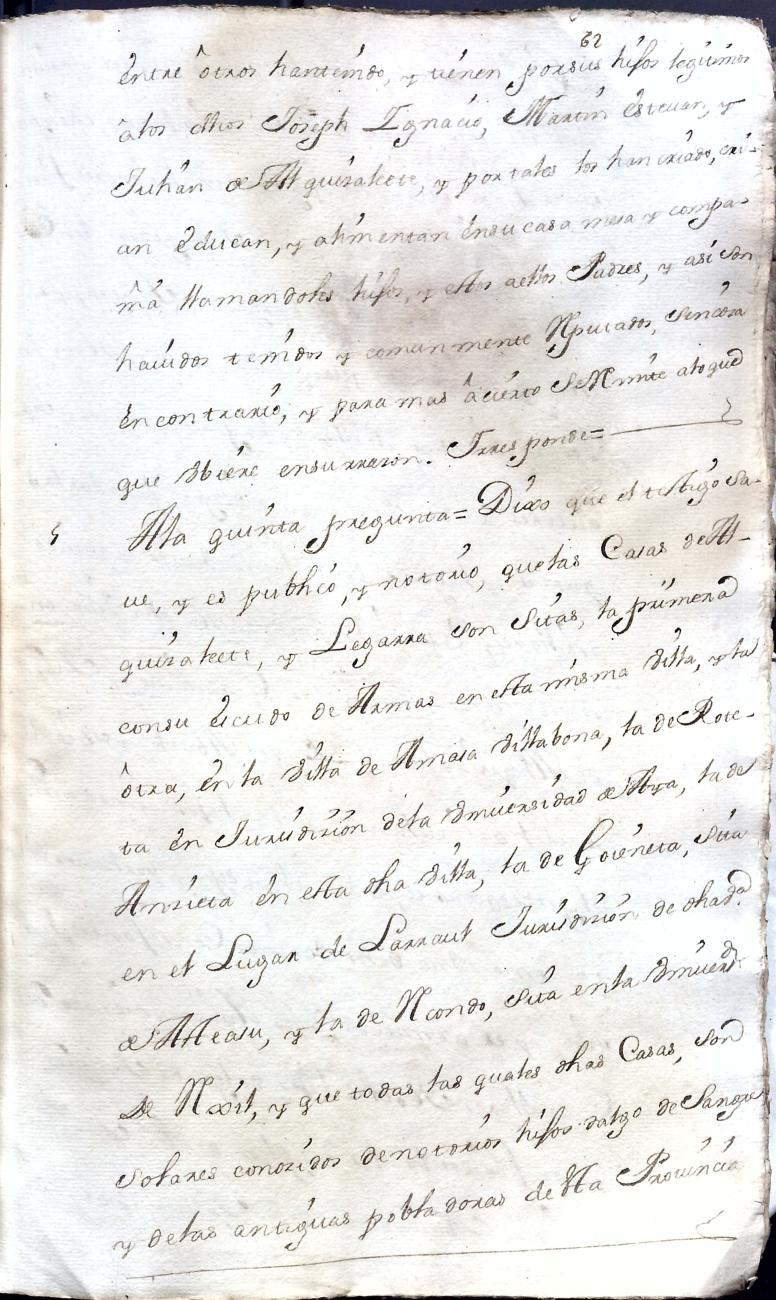 62
entre ôtros hantenido, y tienen porsus hijos legitimos
âlos dhos Joseph Ignacio, Martin estevan, y
Julián de Alquizalete, y portales los han criado, cri-
an educan, y alimentan ensu casa mesa y compa-
ñia llamandoles hijos, y estos aellos Padres, y asi son
havidos tenidos y comunmente Rputados, sincosa
en contrario, y para mas âcierto se Rmite aloque
que dbiere ensurrazon. Yrresponde=
5 Ala quinta pregunta= Dixo que el testigo sa-
ve, y es publico, y notorio, quelas Casas de Al-
quizalete, y Legarra son sitas, la primera
consu escudo de Armas en esta misma villa, y la
ôtra, en la villa de Amasa villabona, la de Rote-
ta en Jurisdizion dela Vniversidad de Aya, la de
Anzieta en esta dha villa, la de Goieneta, sita
en el Lugar de Larraul Jurisdizion de dha va.
de Asteasu, y la de Rcondo, sita enla Vniversd.
de Rxil, y que todas las quales dhas Casas, son
solares conozidos denotorios hijos dalgo de Sangre
y delas antiguas pobladoras de esta Provincia